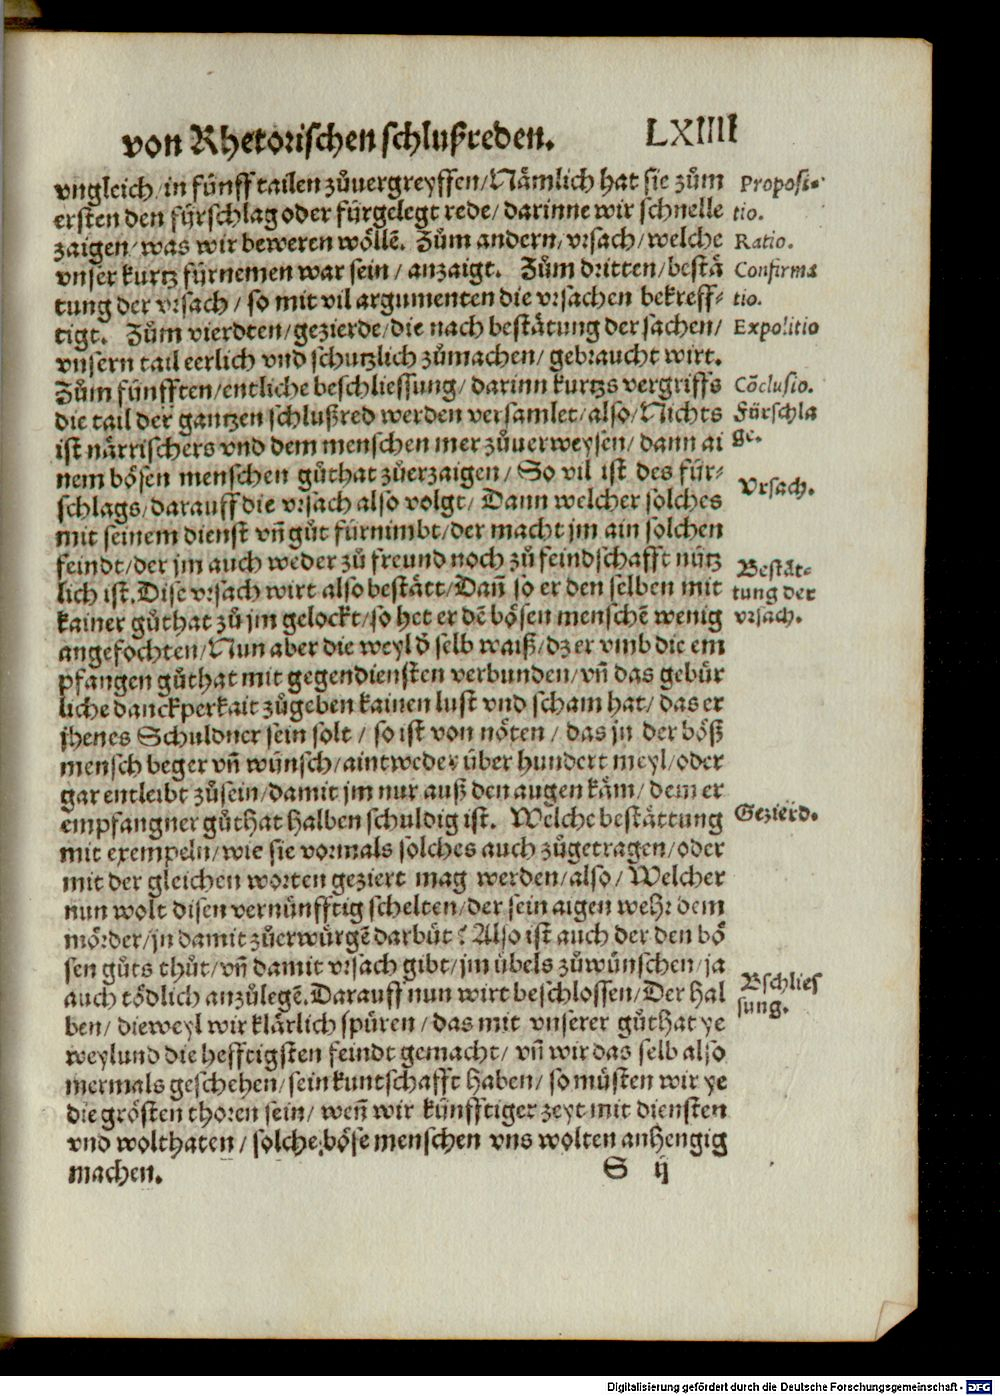 von Rhetorischen schlußreden. LXIIII
vngleich/in fünff tailen zůuergreyffen/Nämlich hat sie zům
ersten den fürschlag oder fürgelegt rede/darinne wir schnelle
zaigen/was wir beweren wöllē. Zům andern/vrsach/welche
vnser kurtz fürnemen war sein/anzaigt. Zům dritten/bestä
tung der vrsach/so mit vil argumenten die vrsachen bekreff⸗
tigt. Zům vierdten/gezierde/die nach bestätung der sachen/
vnsern tail eerlich vnd schutzlich zůmachen/gebraucht wirt.
Zům fünfften/entliche beschliessung/darinn kurtzs vergriffs
die tail der gantzen schlußred werden versamlet/also/Nichts
ist närrischers vnd dem menschen mer zůuerweysen/dann ai
nem bösen menschen gůthat zůerzaigen/So vil ist des für⸗
schlags/darauff die vrsach also volgt/Dann welcher solches
mit seinem dienst vn̄ gůt fürnimbt/der macht jm ain solchen
feindt/der jm auch weder zů freund noch zů feindschafft nütz
lich ist. Dise vrsach wirt also bestätt/Dan̄ so er den selben mit
kainer gůthat zů jm gelockt/so het er dē bösen menschē wenig
angefochten/Nun aber die weyl d̄ selb waiß/dz er vmb die em
pfangen gůthat mit gegendiensten verbunden/vn̄ das gebür
liche danckperkait zůgeben kainen lust vnd scham hat/das er
jhenes Schuldner sein solt/so ist von nöten/das jn der böß
mensch beger vn̄ wünsch/aintweder über hundert meyl/oder
gar entleibt zůsein/damit jm nur auß den augen käm/dem er
empfangner gůthat halben schuldig ist. Welche bestättung
mit exempeln/wie sie vormals solches auch zůgetragen/oder
mit der gleichen worten geziert mag werden/also/Welcher
nun wolt disen vernünfftig schelten/der sein aigen wehr dem
mörder/jn damit zůerwürgē darbüt? Also ist auch der den bö
sen gůts thůt/vn̄ damit vrsach gibt/jm übels zůwünschen/ja
auch tödlich anzůlegē. Darauff nun wirt beschlossen/Der hal
ben/dieweyl wir klärlich spüren/das mit vnserer gůthat ye
weylund die hefftigsten feindt gemacht/vn̄ wir das selb also
mermals geschehen/sein kuntschafft haben/so müsten wir ye
die grösten thoren sein/wen̄ wir künfftiger zeyt mit diensten
vnd wolthaten/solche böse menschen vns wolten anhengig
machen. S ij
Proposi⸗
tio.
Ratio.
Confirma
tio.
Expolitio
Cōclusio.
Fürschla
ge.
Vrsach.
Bestät⸗
tung der
vrsach.
Gezierd.
Bschlies
sung.
Digitalisierung gefördert durch die Deutsche Forschungsgemeinschaft - DFG